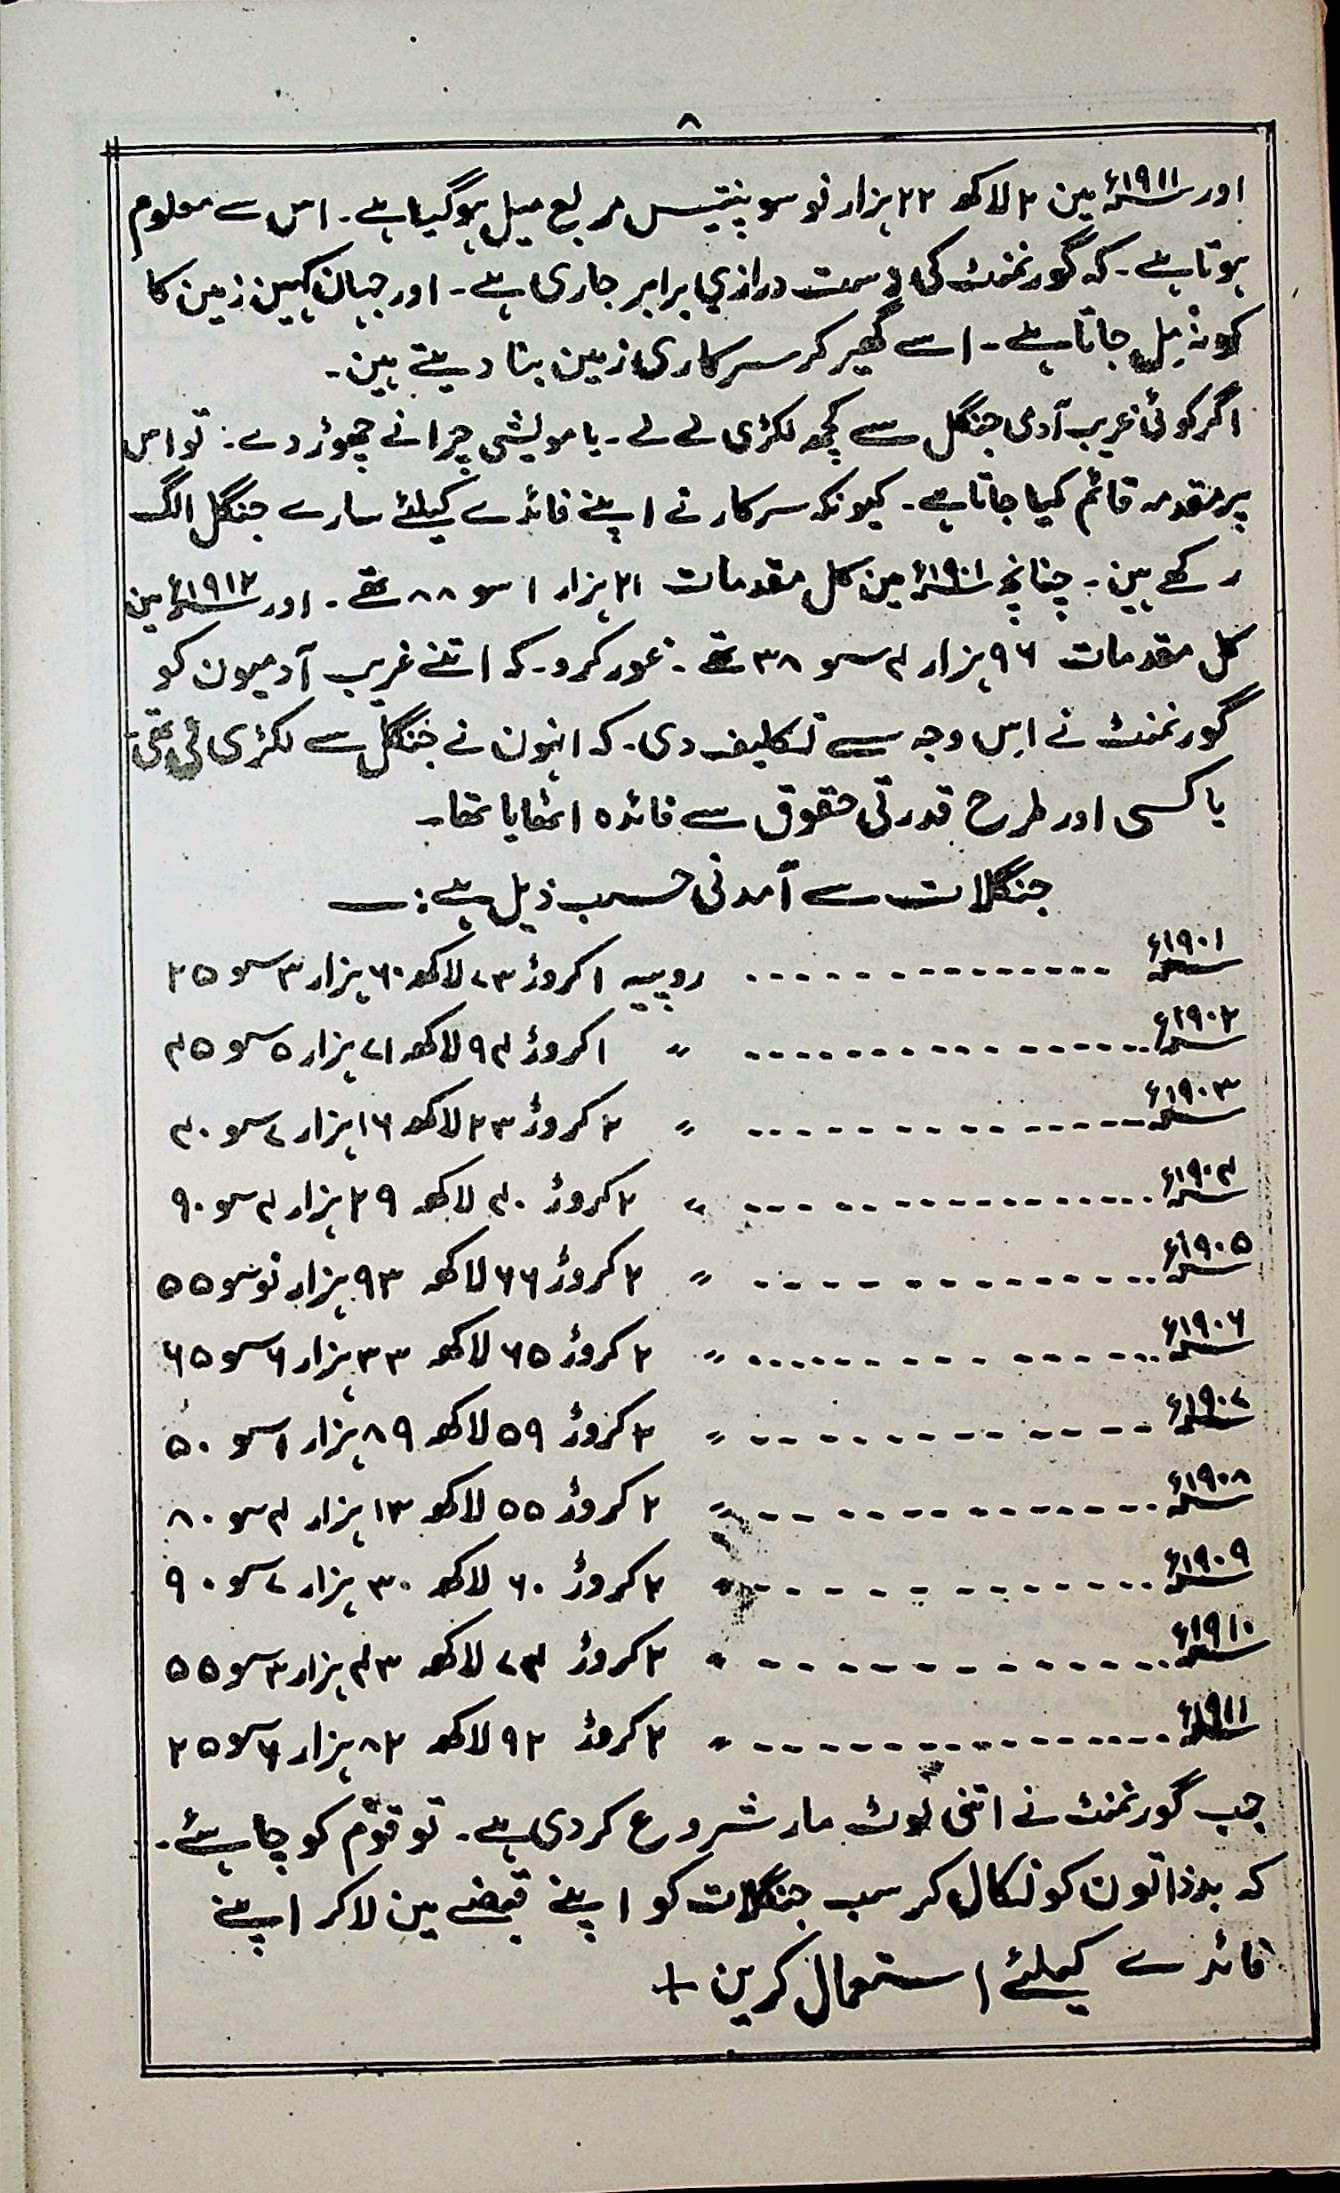 ۸
اور ۱۹۱۱ء مین ۲ لاکھ ۲۲ ہزار نو سو پنتیس مربع میل ہوگیا ہے۔ اس سے معلوم
ہوتا ہے۔ کہ گورنمنٹ کی دست درازی برابر جاری ہے۔ اور جہان کہین زمین کا
کونہ مل جاتا ہے۔ اسے گھیر کر سرکاری زمین بنا دیتے ہین۔
اگر کوئی غریب آدمی جنگل سے کچھ لکڑی لے لے۔ یا مویشی چرانے چھوڑ دے۔ تو اس
پر مقدمہ قائم کیا جاتا ہے۔ کیونکہ سرکار نے اپنے فائدے کیلئے سارے جنگل الگ
رکھے ہین۔ چنانچہ ۱۹۰۱ء مین کل مقدمات ۲۱ ہزار ۱ سو ۸۸ تھے۔ اور ۱۹۱۲ء مین
کل مقدمات ۹۶ ہزار ۴ سو ۳۸ تھے۔ غور کرو۔ کہ اتنے غریب آدمیون کو
گورنمنٹ نے اس وجہ سے تکلیف دی۔ کہ انہون نے جنگل سے لکڑی لی تھی۔
یا کسی اور طرح قدرتی حقوق سے فائدہ اٹھایا تھا۔
جنگلات سے آمدنی حسب ذیل ہے :—
۱۹۰۱ء - - - - - - - - - - - - - - روپیہ ۱ کروڑ ۷۳ لاکھ ۶۰ ہزار ۳ سو ۲۵
۱۹۰۲ء - - - - - - - - - - - - - - 〃 ۱ کروڑ ۹۴ لاکھ ۷۱ ہزار ۵ سو ۴۵
۱۹۰۳ء - - - - - - - - - - - - - - 〃 ۲ کروڑ ۲۳ لاکھ ۱۶ ہزار ۷ سو ۴۰
۱۹۰۴ء - - - - - - - - - - - - - - 〃 ۲ کروڑ ۴۰ لاکھ ۲۹ ہزار ۴ سو ۹۰
۱۹۰۵ء - - - - - - - - - - - - - - 〃 ۲ کروڑ ۶۶ لاکھ ۹۳ ہزار نو سو ۵۵
۱۹۰۶ء - - - - - - - - - - - - - - 〃 ۲ کروڑ ۶۵ لاکھ ۳۳ ہزار ۶ سو ۶۵
۱۹۰۷ء - - - - - - - - - - - - - - 〃 ۲ کروڑ ۵۹ لاکھ ۸۹ ہزار ۱ سو ۵۰
۱۹۰۸ء - - - - - - - - - - - - - - 〃 ۲ کروڑ ۵۵ لاکھ ۱۳ ہزار ۴ سو ۸۰
۱۹۰۹ء - - - - - - - - - - - - - - 〃 ۲ کروڑ ۶۰ لاکھ ۳۰ ہزار ۷ سو ۹۰
۱۹۱۰ء - - - - - - - - - - - - - - 〃 ۲ کروڑ ۷۴ لاکھ ۴۳ ہزار ۳ سو ۵۵
۱۹۱۱ء - - - - - - - - - - - - - - 〃 ۲ کروڑ ۹۲ لاکھ ۸۲ ہزار ۶ سو ۲۵
جب گورنمنٹ نے اتنی لوٹ مار شروع کر دی ہے۔ تو قوم کو چاہئے۔
کہ بدذاتون کو نکال کر سب جنگلات کو اپنے قبضے مین لا کر اپنے
فائدے کیلئے استعمال کرین +